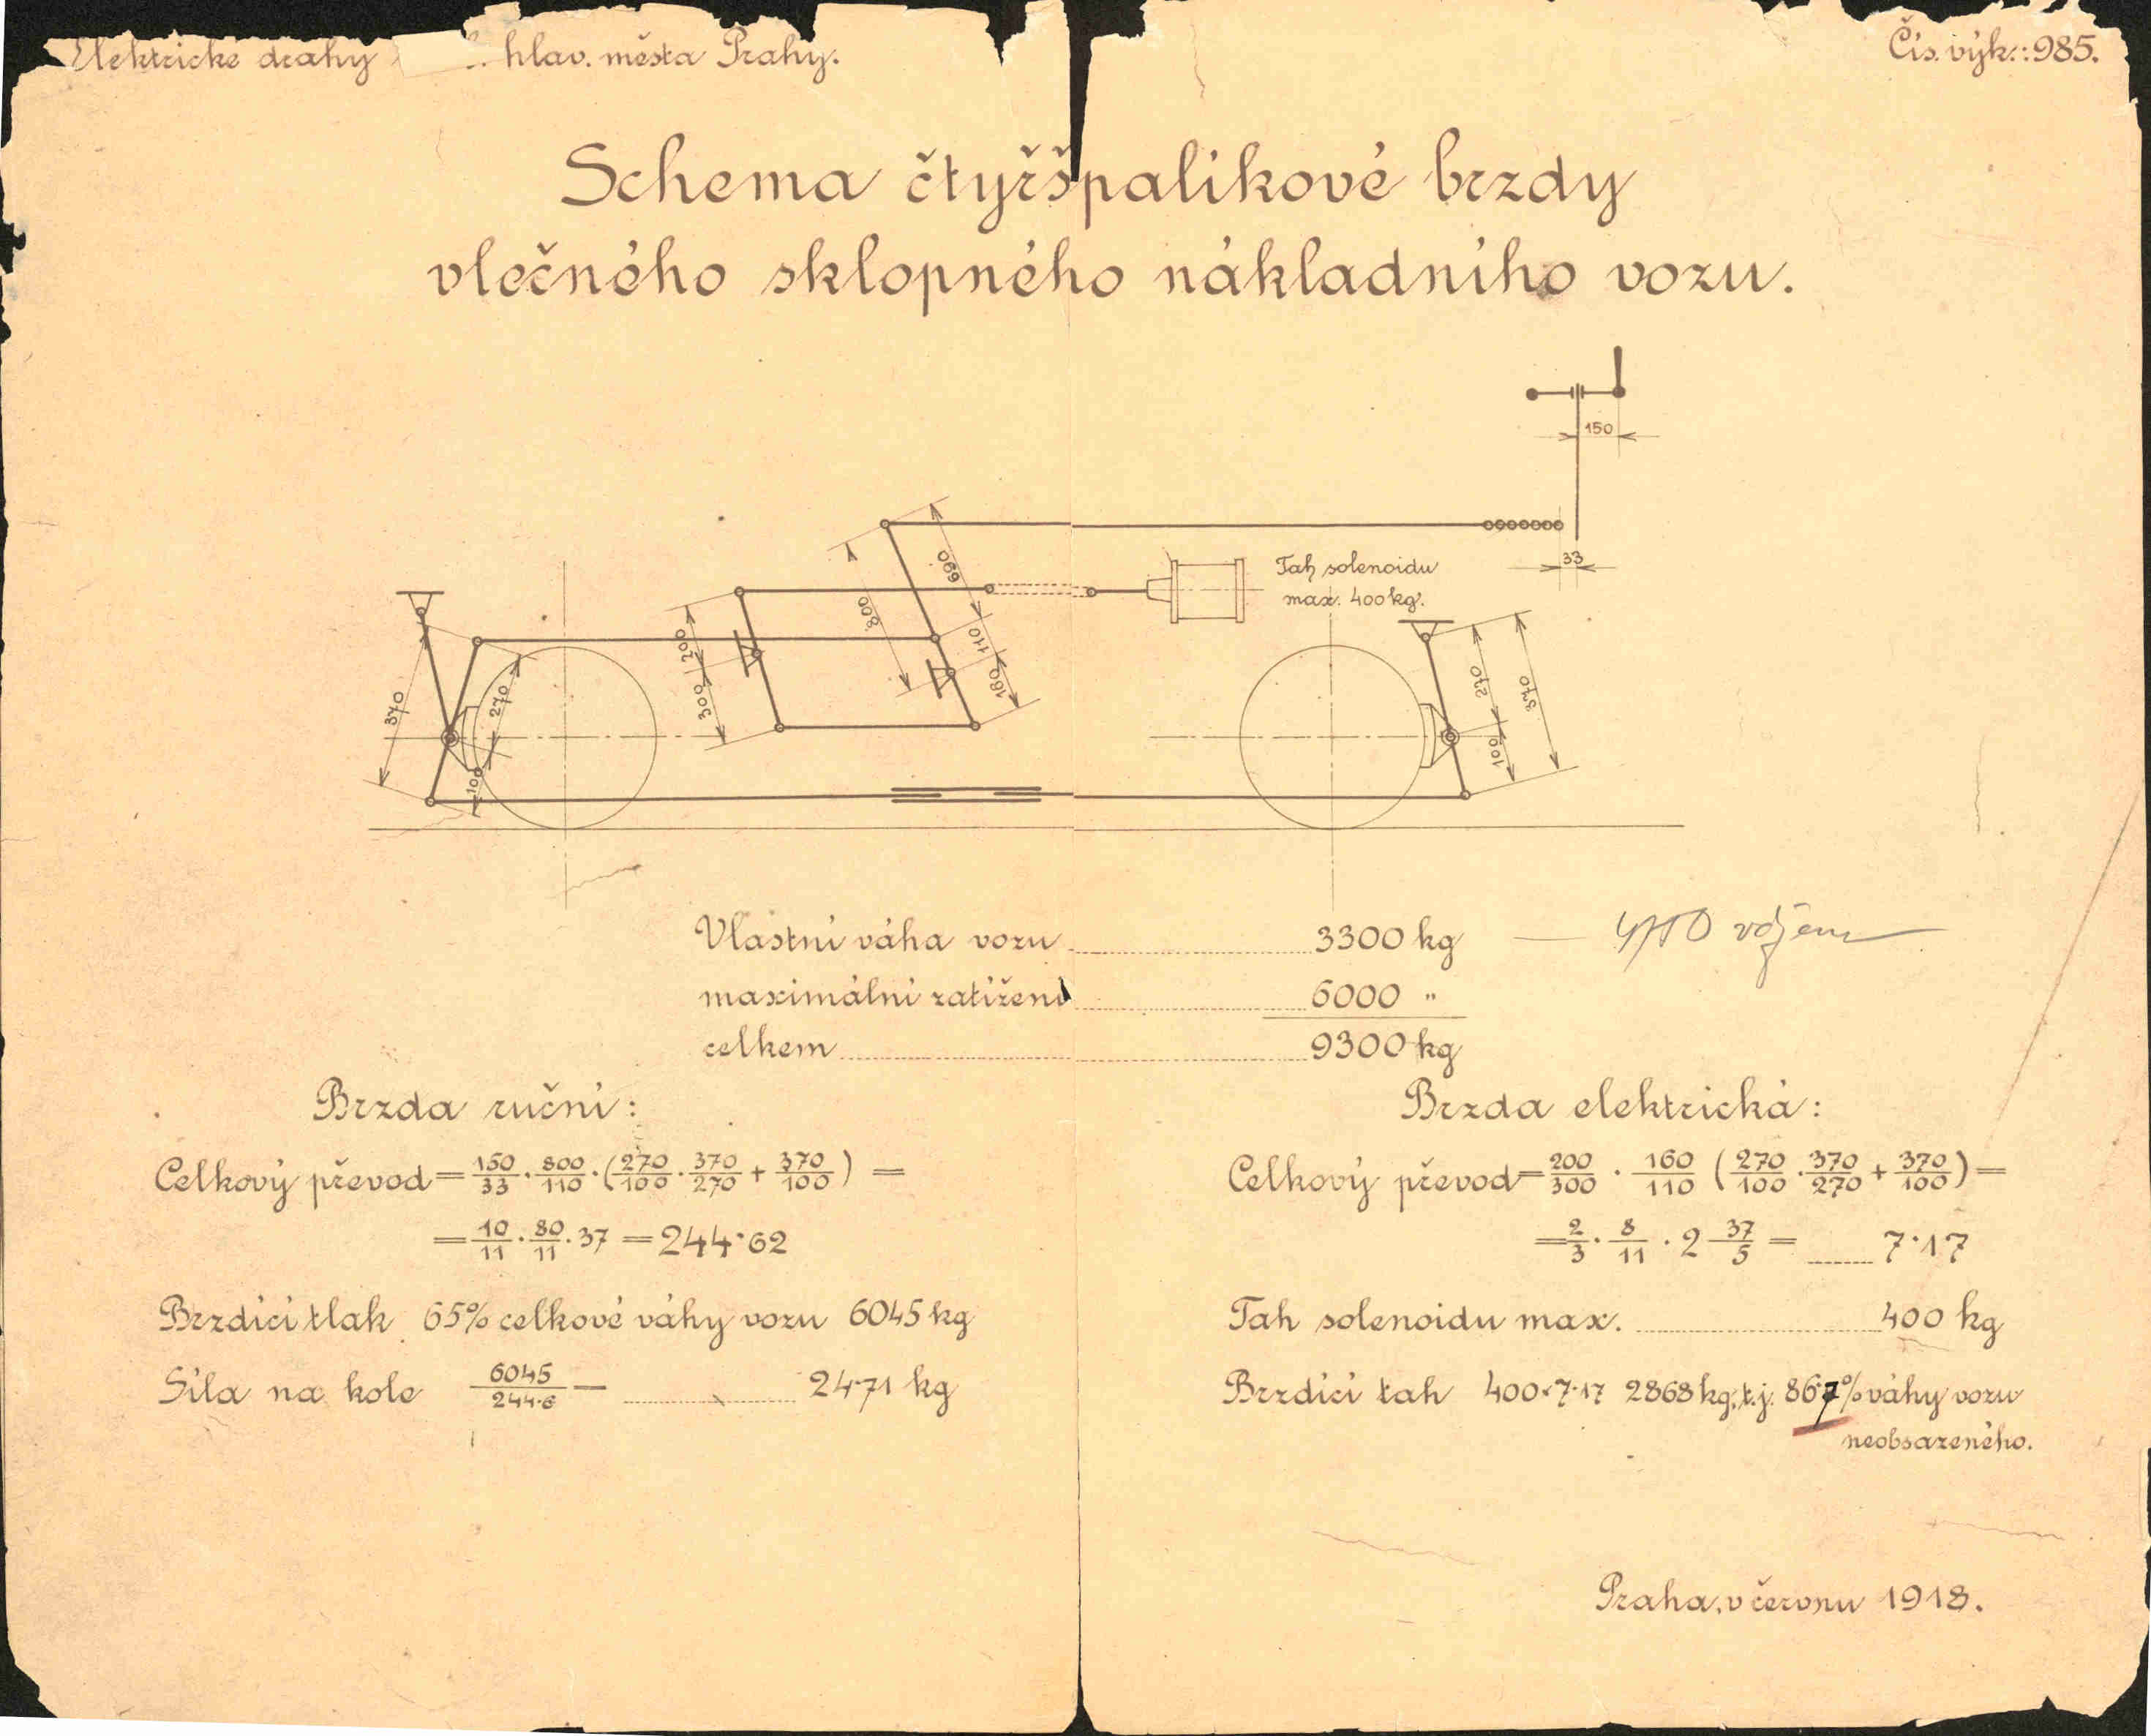 Elektrické drahy hlav. města Prahy.
Čís. výk.: 985.
Schema čtyřšpalíkové brzdy
vlečného sklopného nákladního vozu.
150
33
Tah solenoidu
max. 400 kg.
690
800
110
160
200
300
370
270
100
270
370
100
Vlastní váha vozu 3300 kg
maximální zatížení 6000 "
celkem 9300 kg
Brzda ruční:
Celkový převod = 150/33 · 800/110 · (270/100 · 370/270 + 370/100) =
= 10/11 · 80/11 · 37 = 244·62
Brzdící tlak 65% celkové váhy vozu 6045 kg
Síla na kole 6045/244·6 — 24·71 kg
Brzda elektrická:
Celkový převod = 200/300 · 160/110 (270/100 · 370/270 + 370/100) =
= 2/3 · 8/11 · 2 37/5 = 7·17
Tah solenoidu max. 400 kg
Brzdící tah 400·7·17 2868 kg, t.j. 86·7% váhy vozu
neobsazeného.
Praha, v červnu 1918.